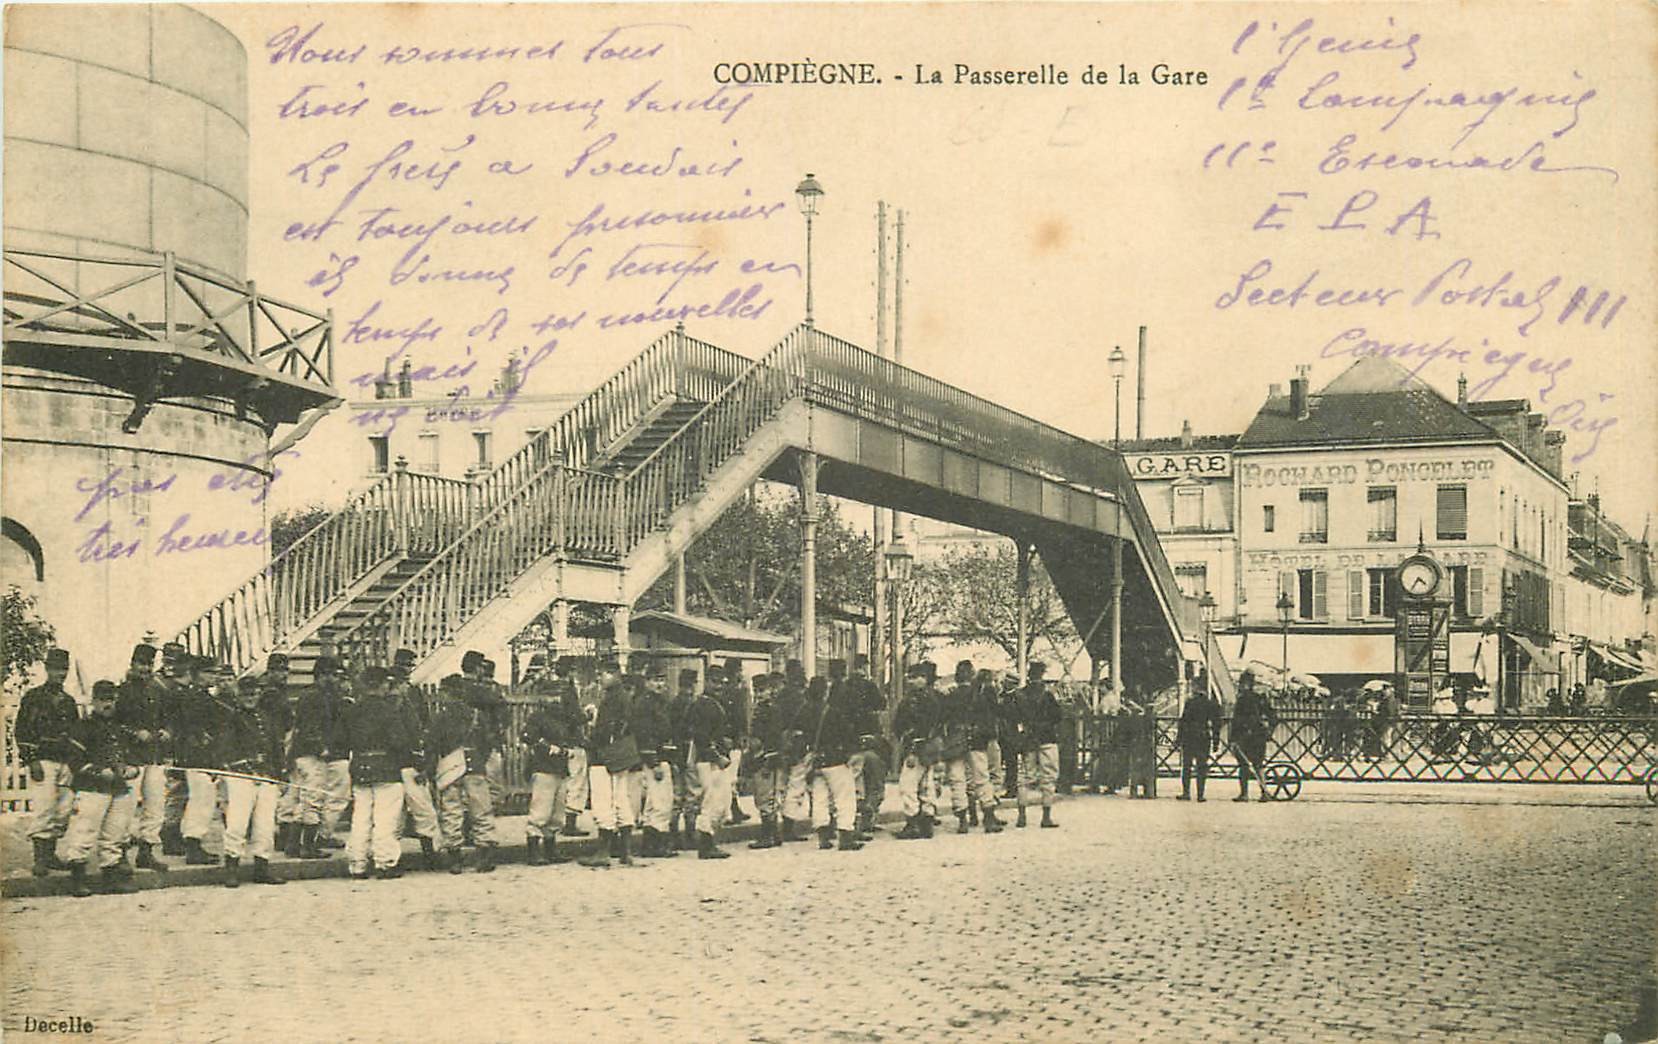 COMPIÈGNE. - La Passerelle de la Gare
Nous sommes tous
trois en bonne santés
Le frère a
est toujours prisonnier
il donne de temps en
temps de ses nouvelles
mais il
ne doit
pas etre
très heureu
l'Genie
Compagnie
11e Escouade
E P A
Secteur Postal 111
Compiegne
Oise
GARE
ROCHARD PONCELET
HÔTEL DE LA GARE
Decelle